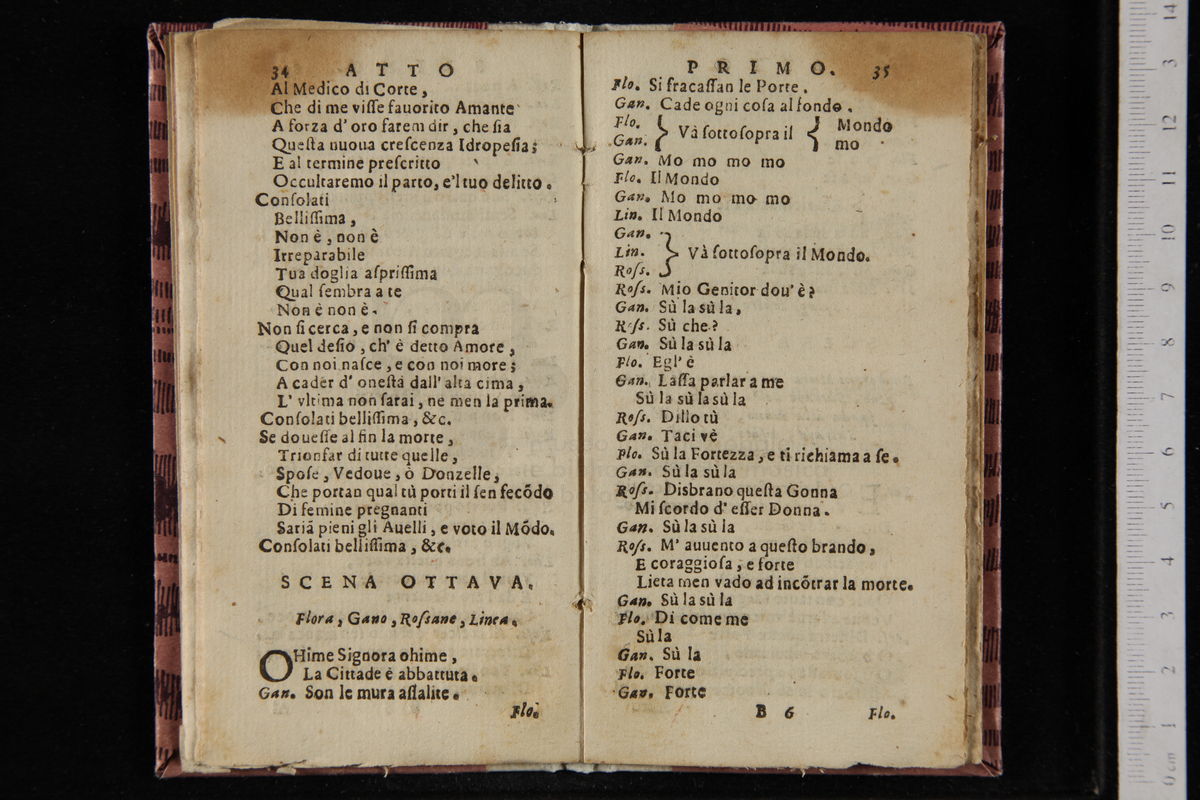 34 ATTO
Al Medico di Corte,
Che di me viſſe fauorito Amante
A forza d' oro farem dir, che ſia
Queſta nuoua creſcenza Idropeſia;
E al termine preſcritto
Occultaremo il parto, e'l tuo delitto.
Conſolati
Belliſſima,
Non è, non è
Irreparabile
Tua doglia aſpriſſima
Qual ſembra a te
Non è non è.
Non ſi cerca, e non ſi compra
Quel deſio, ch' è detto Amore,
Con noi naſce, e con noi more;
A cader d' oneſtà dall' alta cima,
L' vltima non ſarai, ne men la prima.
Conſolati belliſſima, &c.
Se doueſſe al fin la morte,
Trionfar di tutte quelle,
Spoſe, Vedoue, ò Donzelle,
Che portan qual tù porti il ſen fecõdo
Di femine pregnanti
Sariã pieni gli Auelli, e voto il Mõdo.
Conſolati belliſſima, &c.
SCENA OTTAVA.
Flora, Gano, Roſsane, Linca.
OHime Signora ohime,
La Cittade è abbattuta.
Gan. Son le mura aſſalite.
Flo.
PRIMO. 35
Flo. Si fracaſſan le Porte.
Gan. Cade ogni coſa al fondo.
Flo. } Và ſottoſopra il { Mondo
Gan. mo
Gan. Mo mo mo mo
Flo. Il Mondo
Gan. Mo mo mo mo
Lin. Il Mondo
Gan.
Lin. } Và ſottoſopra il Mondo.
Roſs.
Roſs. Mio Genitor dou' è?
Gan. Sù la sù la,
Roſs. Sù che?
Gan. Sù la sù la
Flo. Egl' è
Gan. Laſſa parlar a me
Sù la sù la sù la
Roſs. Dillo tù
Gan. Taci vè
Flo. Sù la Fortezza, e ti richiama a ſe.
Gan. Sù la sù la
Roſs. Disbrano queſta Gonna
Mi ſcordo d' eſſer Donna.
Gan. Sù la sù la
Roſs. M' auuento a queſto brando,
E coraggioſa, e forte
Lieta men vado ad incõtrar la morte.
Gan. Sù la sù la
Flo. Di come me
Sù la
Gan. Sù la
Flo. Forte
Gan. Forte
B 6 Flo.
14
13
12
11
10
9
8
7
6
5
4
3
2
1
0 cm